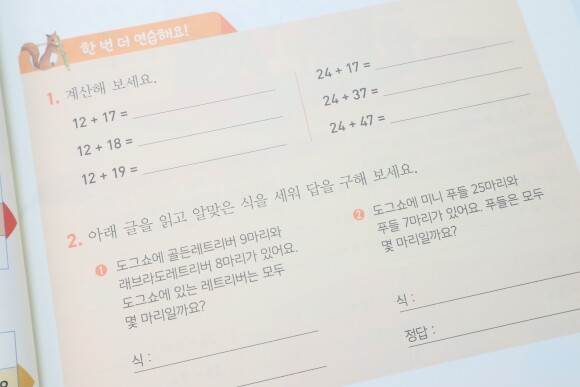 한 번 더 연습해요!
1. 계산해 보세요.
12 + 17 =
12 + 18 =
12 + 19 =
24 + 17 =
24 + 37 =
24 + 47 =
2. 아래 글을 읽고 알맞은 식을 세워 답을 구해 보세요.
1 도그쇼에 골든레트리버 9마리와
래브라도레트리버 8마리가 있어요.
도그쇼에 있는 레트리버는 모두
몇 마리일까요?
식 :
2 도그쇼에 미니 푸들 25마리와
푸들 7마리가 있어요. 푸들은 모두
몇 마리일까요?
식 :
정답 :